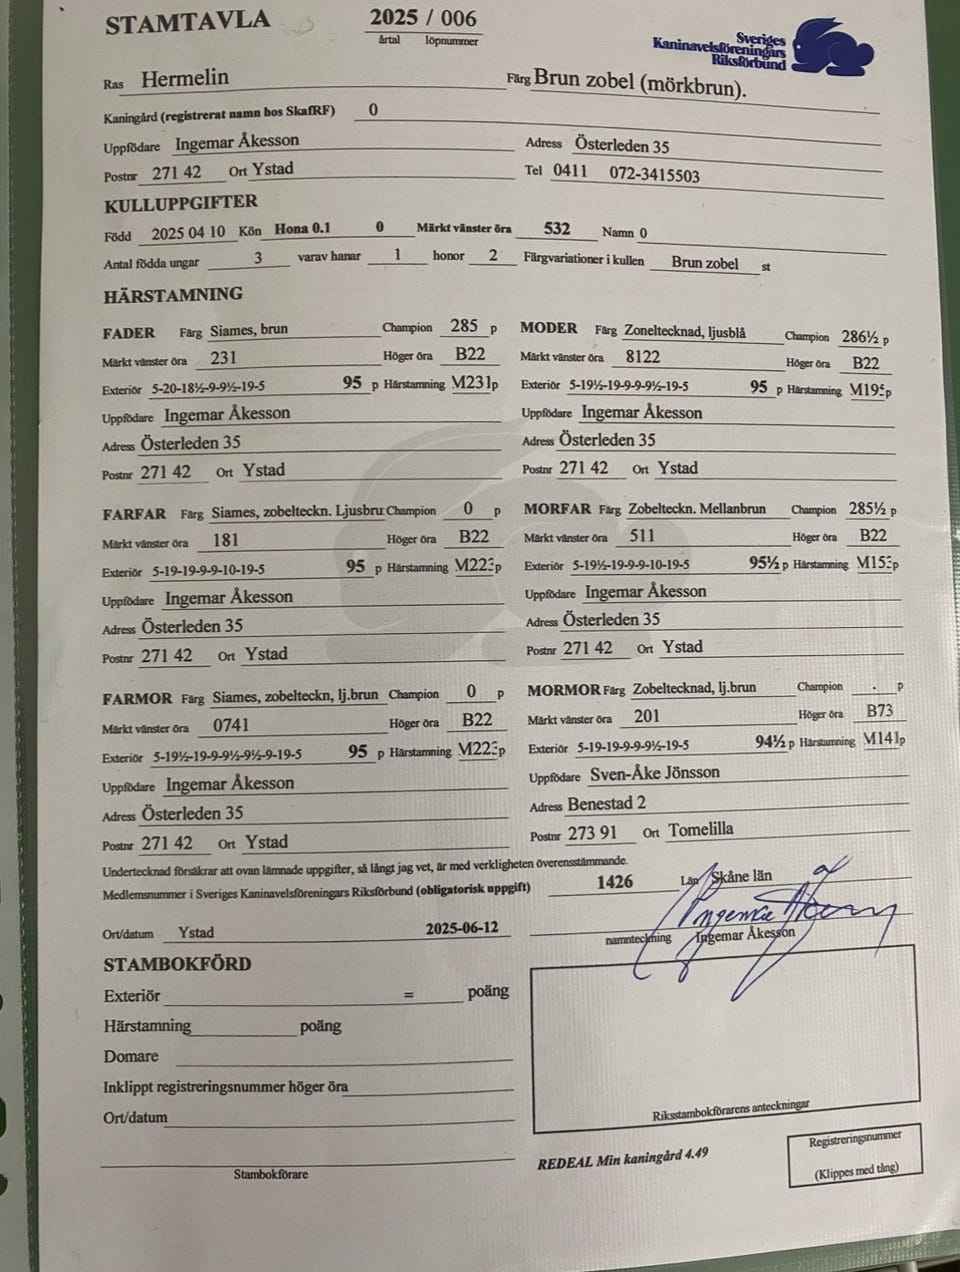 STAMTAVLA 2025 / 006
årtal löpnummer
Sveriges
Kaninavelsföreningars
Riksförbund
Ras Hermelin Färg Brun zobel (mörkbrun).
Kaningård (registrerat namn hos SkafRF) 0
Uppfödare Ingemar Åkesson Adress Österleden 35
Postnr 271 42 Ort Ystad Tel 0411 072-3415503
KULLUPPGIFTER
Född 2025 04 10 Kön Hona 0.1 0 Märkt vänster öra 532 Namn 0
Antal födda ungar 3 varav hanar 1 honor 2 Färgvariationer i kullen Brun zobel st
HÄRSTAMNING
FADER Färg Siames, brun Champion 285 p MODER Färg Zoneltecknad, ljusblå Champion 286½ p
Märkt vänster öra 231 Höger öra B22 Märkt vänster öra 8122 Höger öra B22
Exteriör 5-20-18½-9-9½-19-5 95 p Härstamning M231p Exteriör 5-19½-19-9-9-9½-19-5 95 p Härstamning p
Uppfödare Ingemar Åkesson Uppfödare Ingemar Åkesson
Adress Österleden 35 Adress Österleden 35
Postnr 271 42 Ort Ystad Postnr 271 42 Ort Ystad
FARFAR Färg Siames, zobelteckn. Ljusbru Champion 0 p MORFAR Färg Zobelteckn. Mellanbrun Champion 285½ p
Märkt vänster öra 181 Höger öra B22 Märkt vänster öra 511 Höger öra B22
Exteriör 5-19-19-9-9-10-19-5 95 p Härstamning p Exteriör 5-19½-19-9-9-10-19-5 95½ p Härstamning p
Uppfödare Ingemar Åkesson Uppfödare Ingemar Åkesson
Adress Österleden 35 Adress Österleden 35
Postnr 271 42 Ort Ystad Postnr 271 42 Ort Ystad
FARMOR Färg Siames, zobelteckn, lj.brun Champion 0 p MORMOR Färg Zobeltecknad, lj.brun Champion . p
Märkt vänster öra 0741 Höger öra B22 Märkt vänster öra 201 Höger öra B73
Exteriör 5-19½-19-9-9½-9½-9-19-5 95 p Härstamning p Exteriör 5-19-19-9-9-9½-19-5 94½ p Härstamning M141p
Uppfödare Ingemar Åkesson Uppfödare Sven-Åke Jönsson
Adress Österleden 35 Adress Benestad 2
Postnr 271 42 Ort Ystad Postnr 273 91 Ort Tomelilla
Undertecknad försäkrar att ovan lämnade uppgifter, så långt jag vet, är med verkligheten överensstämmande.
Medlemsnummer i Sveriges Kaninavelsföreningars Riksförbund (obligatorisk uppgift) 1426 Län Skåne län
Ingemar Åkesson
Ort/datum Ystad 2025-06-12 namnteckning Ingemar Åkesson
STAMBOKFÖRD
Exteriör = poäng
Härstamning poäng
Domare
Inklippt registreringsnummer höger öra
Ort/datum
Riksstambokförarens anteckningar
Stambokförare
REDEAL Min kaningård 4.49
Registreringsnummer
(Klippes med tång)